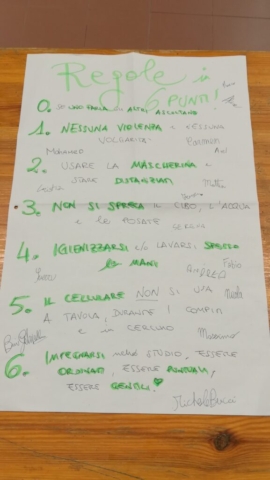 Regole in
6 PUNTI!
0. SE UNO PARLA GLI ALTRI ASCOLTANO
1. NESSUNA VIOLENZA E NESSUNA
VOLGARITÀ
2. USARE LA MASCHERINA E
STARE DISTANZIATI
3. NON SI SPRECA IL CIBO, L'ACQUA
E LE POSATE
4. IGIENIZZARSI E/O LAVARSI SPESSO
LE MANI
Fabio
ANDREA
5. IL CELLULARE NON SI USA
A TAVOLA, DURANTE I COMPITI
E IN CERCHIO
Massimo
6. IMPEGNARSI NELLO STUDIO, ESSERE
ORDINATI, ESSERE PUNTUALI,
ESSERE GENTILI